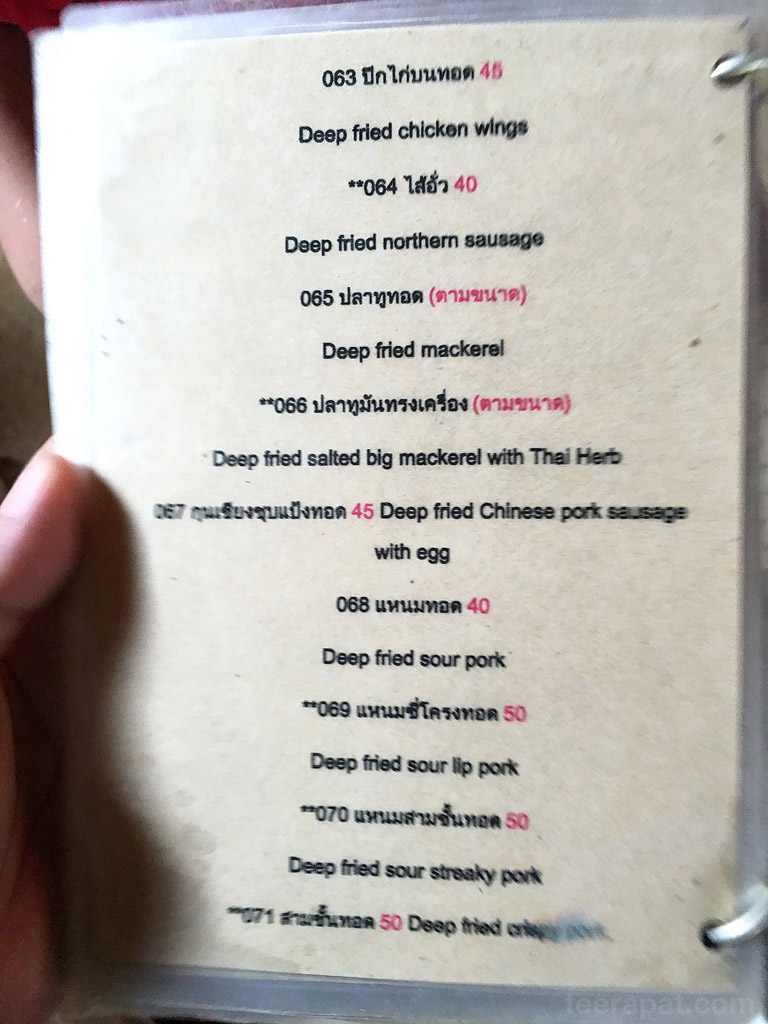 063 ปีกไก่บนทอด 45
Deep fried chicken wings
**064 ไส้อั่ว 40
Deep fried northern sausage
065 ปลาทูทอด (ตามขนาด)
Deep fried mackerel
**066 ปลาทูมันทรงเครื่อง (ตามขนาด)
Deep fried salted big mackerel with Thai Herb
067 กุนเชียงชุบแป้งทอด 45 Deep fried Chinese pork sausage
with egg
068 แหนมทอด 40
Deep fried sour pork
**069 แหนมซี่โครงทอด 50
Deep fried sour lip pork
**070 แหนมสามชั้นทอด 50
Deep fried sour streaky pork
**071 สามชั้นทอด 50 Deep fried crispy pork
teerapat.com